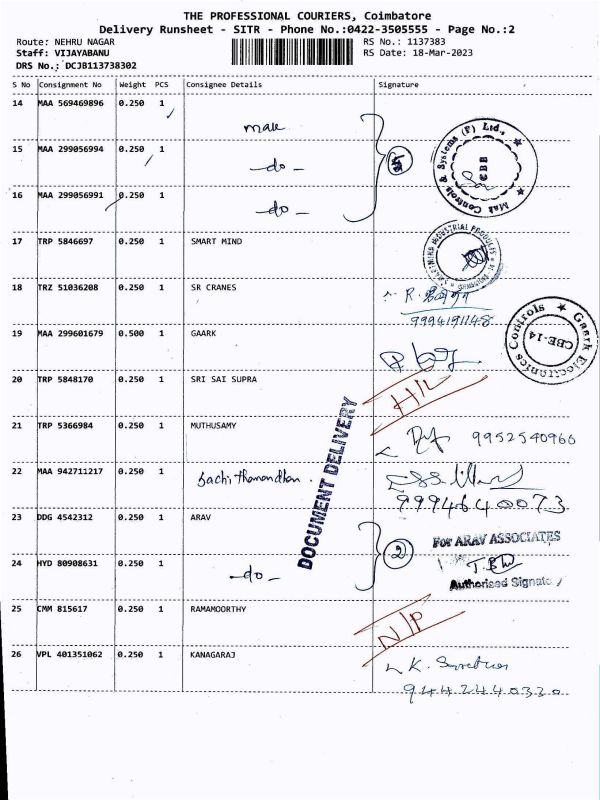 THE PROFESSIONAL COURIERS, Coimbatore
Delivery Runsheet - SITR - Phone No.:0422-3505555 - Page No.:2
Route: NEHRU NAGAR
RS No.: 1137383
Staff: VIJAYABANU
RS Date: 18-Mar-2023
DRS No.: DCJB113738302
S No Consignment No Weight PCS Consignee Details Signature
14 MAA 569469896 0.250 1
mak
15 MAA 299056994 0.250 1
-do-
16 MAA 299056991 0.250 1
-do-
Mak Controls & Systems (P) Ltd.,
CBE
17 TRP 5846697 0.250 1 SMART MIND
18 TRZ 51036208 0.250 1 SR CRANES
9994191148
19 MAA 299601679 0.500 1 GAARK
Gaark Electronics Controls
CBE-14
20 TRP 5848170 0.250 1 SRI SAI SUPRA
H/L
21 TRP 5366984 0.250 1 MUTHUSAMY
9952540966
DOCUMENT DELIVERY
22 MAA 942711217 0.250 1 Sachithanandhan
9994640073
23 DDG 4542312 0.250 1 ARAV
2
For ARAV ASSOCIATES
24 HYD 80908631 0.250 1
-do-
Authorised Signato
25 CMM 815617 0.250 1 RAMAMOORTHY
N/P
26 VPL 401351062 0.250 1 KANAGARAJ